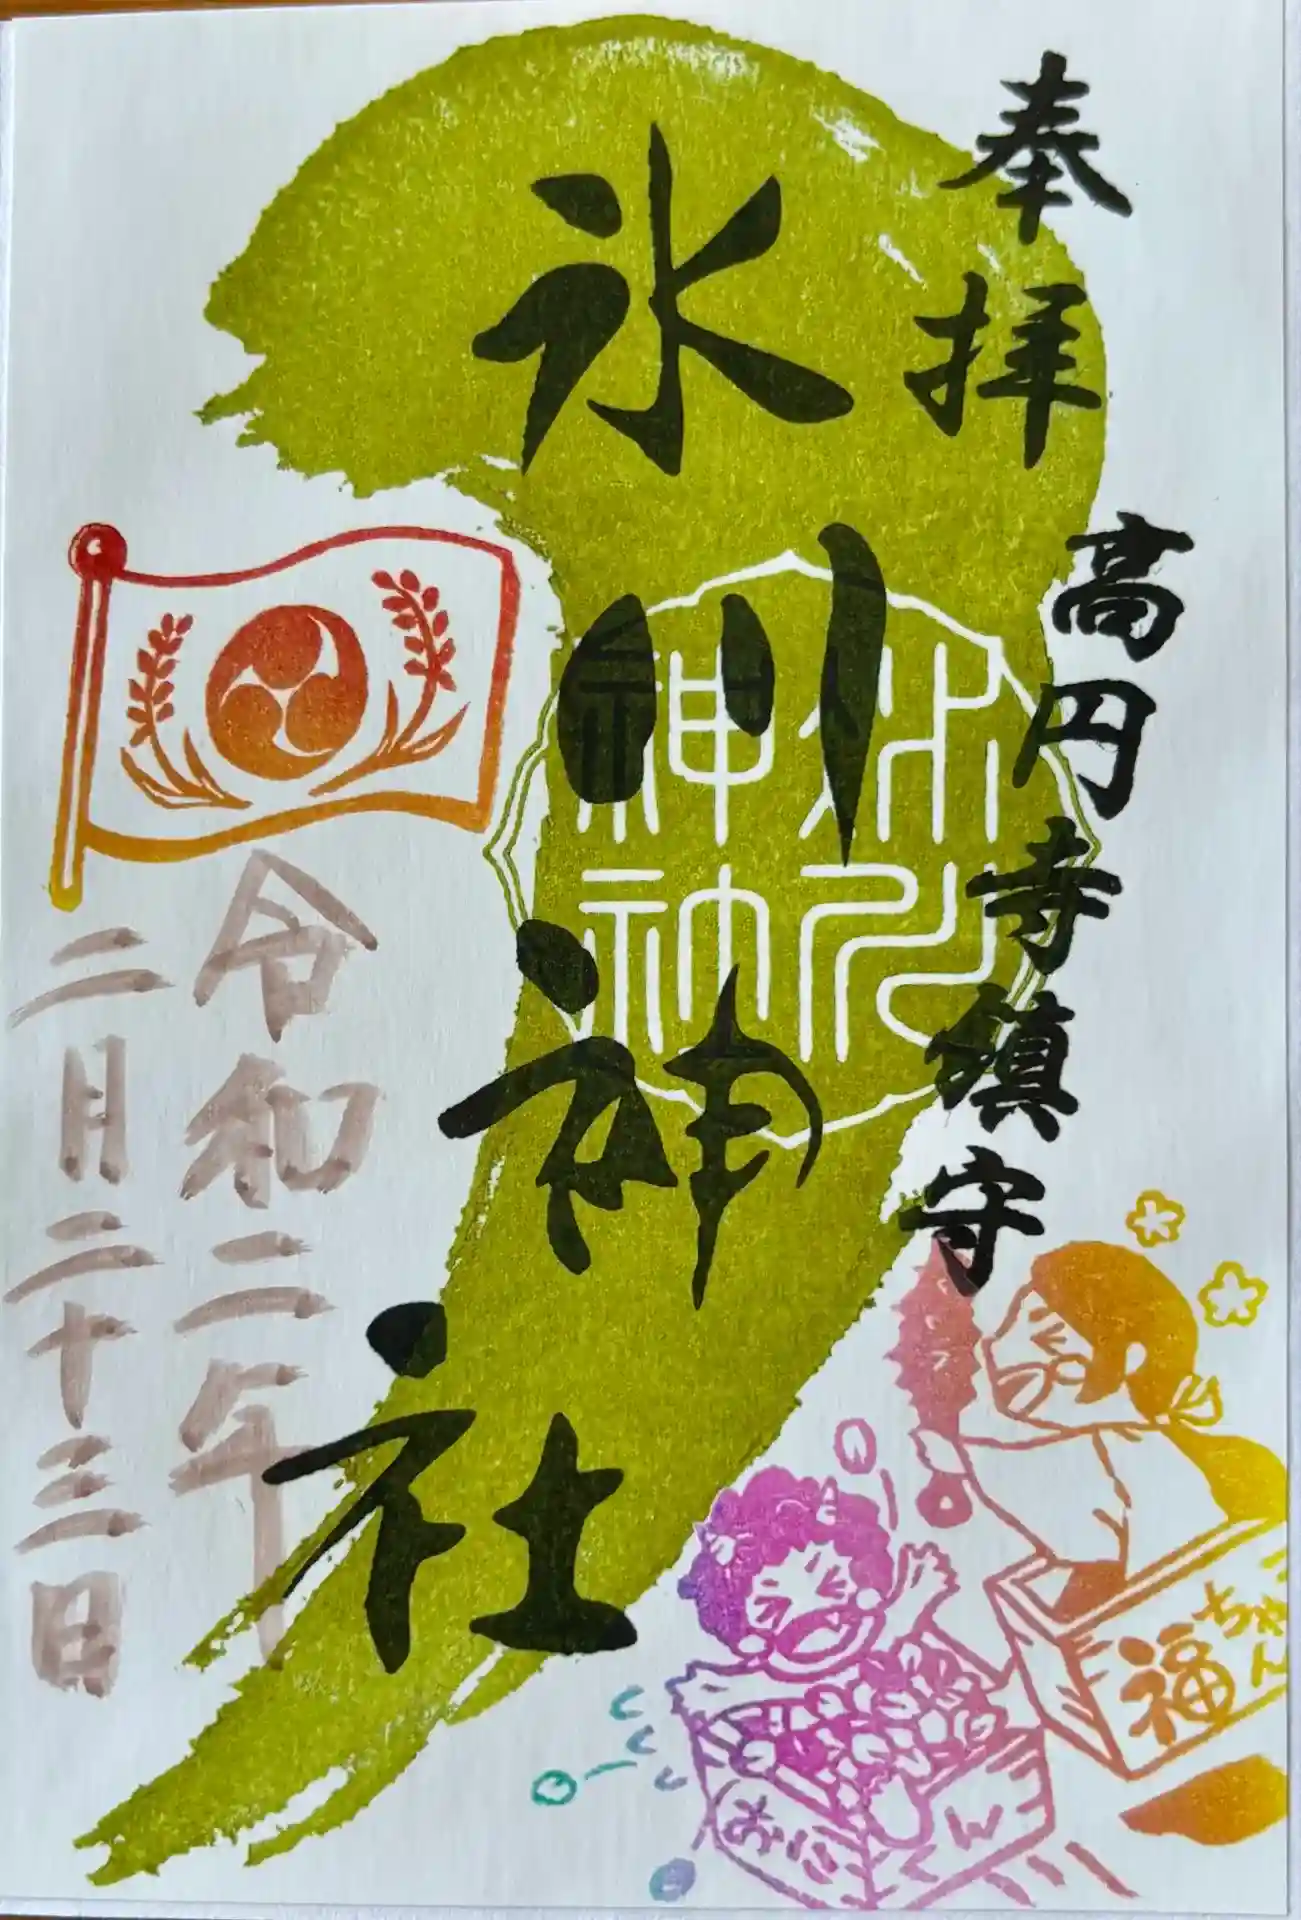 奉拝
高円寺鎮守
氷川神社
氷川神社
令和二年
二月二十三日
福ちゃん
おに